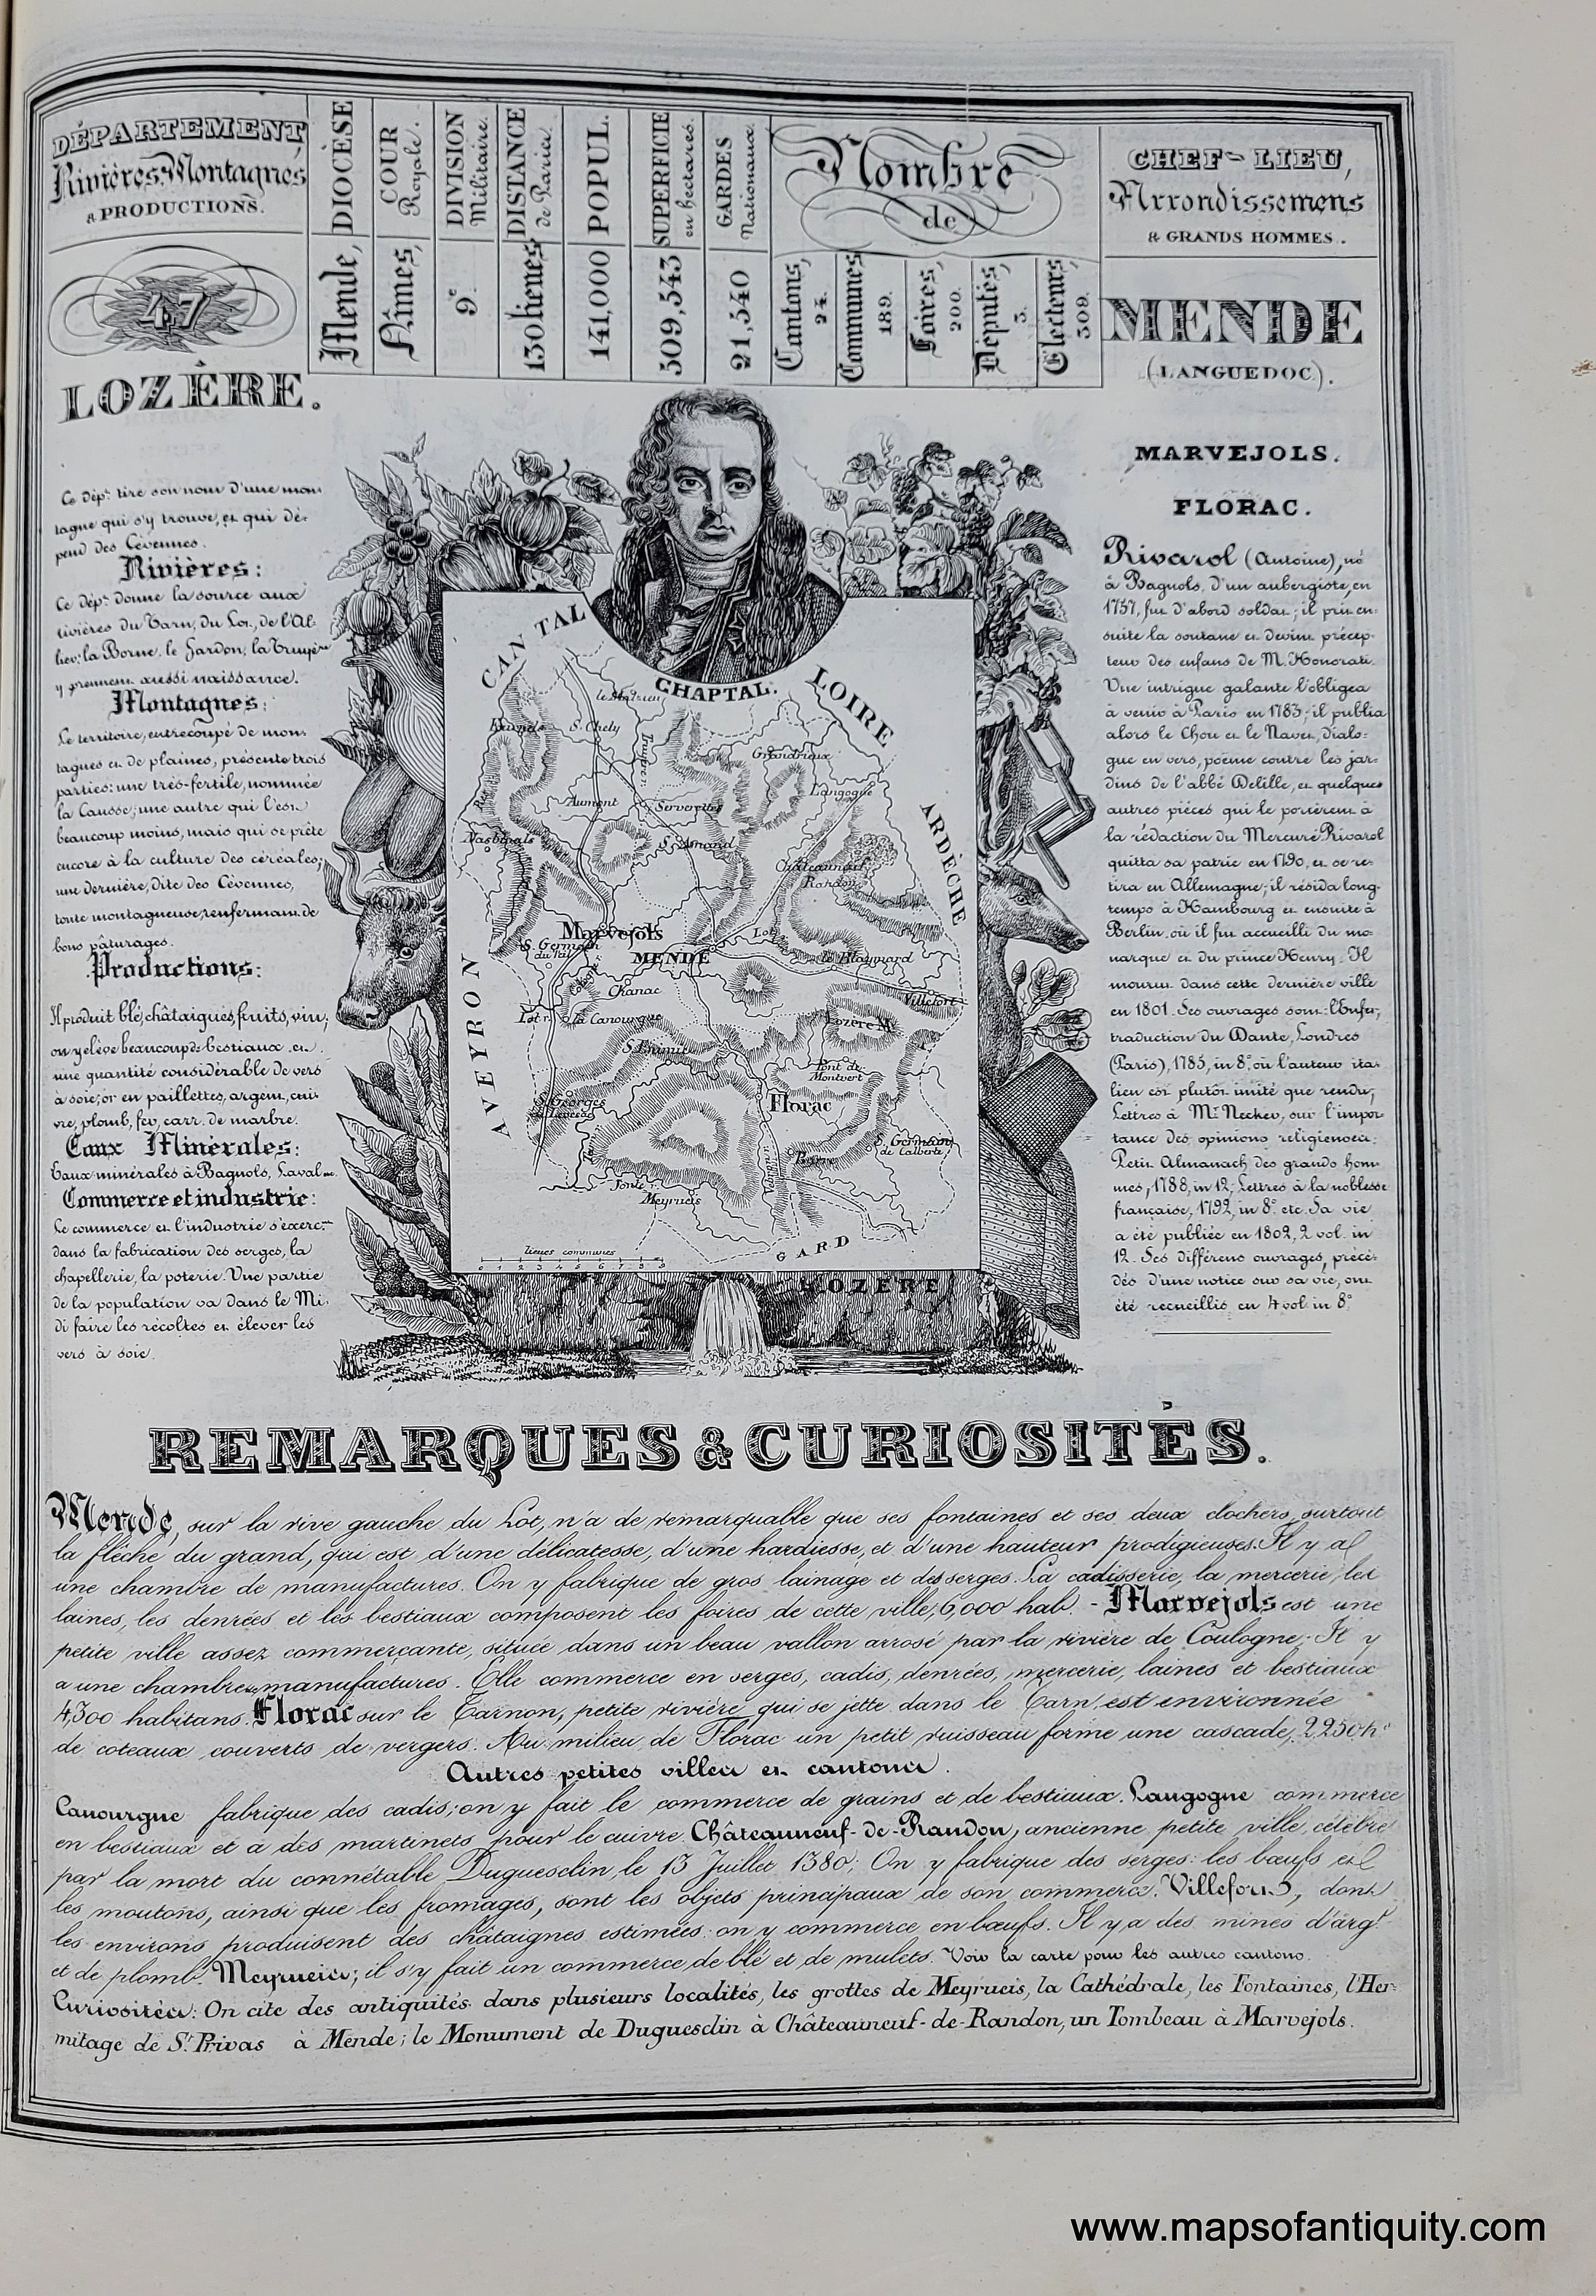 DÉPARTEMENT
Rivières, Montagnes
& PRODUCTIONS.
DIOCÈSE
Mende,
COUR
Royale.
Nîmes,
DIVISION
Militaire.
9e
DISTANCE
de Paris.
130 lieues
POPUL.
141,000
SUPERFICIE
en hectares.
509,543
GARDES
Nationaux.
21,540
Nombre
de
Cantons,
24.
Communes
189.
Foires,
200.
Députés,
3.
Electeurs,
309.
CHEF-LIEU,
Arrondissemens
& GRANDS HOMMES.
47
LOZÈRE.
MENDE
(LANGUEDOC).
MARVEJOLS.
FLORAC.
Ce dépt. tire son nom d'une mon-
tagne qui s'y trouve, et qui dé-
pend des Cévennes.
Rivières:
Ce dépt. donne la source aux
rivières du Tarn, du Lot, de l'Al-
lier; la Borne, le Gardon, la Truyère
y prennent aussi naissance.
Montagnes:
Le territoire, entrecoupé de mon-
tagnes et de plaines, présente trois
parties: une très-fertile, nommée
la Causse; une autre qui l'est
beaucoup moins, mais qui se prête
encore à la culture des céréales;
une dernière, dite des Cévennes,
toute montagneuse, renfermant de
bons pâturages.
Productions:
Il produit blé, châtaignes, fruits, vin;
on y élève beaucoup de bestiaux et
une quantité considérable de vers
à soie; or en paillettes, argent, cui-
vre, plomb, fer, carr. de marbre.
Eaux Minérales:
Eaux minérales à Bagnols, Laval etc.
Commerce et industrie:
Le commerce et l'industrie s'exercent
dans la fabrication des serges, la
chapellerie, la poterie. Une partie
de la population va dans le Mi-
di faire les récoltes et élever les
vers à soie.
CHAPTAL.
CANTAL
LOIRE
ARDÈCHE
AVEYRON
GARD
le Malzieu
S. Chely
Grandrieux
Langogne
Aumont
Serverette
Nasbinals
S. Amand
Châteauneuf
Randon
Marvejols
S. Germain
du Teil
MENDE
Lot
le Bleymard
Chanac
Villefort
Lot r.
la Canourgue
Lozère M.
S. Enimie
Pont de
Montvert
Florac
S. Georges
de Levezac
S. Germain
de Calberte
Barre
Jonte r.
Meyrueis
lieues communes
0 1 2 3 4 5 6 7 8 9
LOZÈRE
Rivarol (Antoine), né
à Bagnols, d'un aubergiste, en
1757, fut d'abord soldat; il prit en-
suite la soutane et devint précep-
teur des enfans de M. Honorati.
Une intrigue galante l'obligea
à venir à Paris en 1783; il publia
alors le Chou et le Navet, dialo-
gue en vers, poëme contre les jar-
dins de l'abbé Delille, et quelques
autres pièces qui le portèrent à
la rédaction du Mercure. Rivarol
quitta sa patrie en 1790, et se re-
tira en Allemagne; il résida long-
temps à Hambourg et ensuite à
Berlin, où il fut accueilli du mo-
narque et du prince Henry. Il
mourut dans cette dernière ville
en 1801. Ses ouvrages sont: l'Enfer,
traduction du Dante, Londres
(Paris), 1785, in 8°, où l'auteur ita-
lien est plutôt imité que rendu;
Lettres à Mr. Necker, sur l'impor-
tance des opinions religieuses;
Petit Almanach des grands hom-
mes, 1788, in 12; Lettres à la noblesse
française, 1792, in 8° etc. Sa vie
a été publiée en 1802, 2 vol. in
12. Ses différens ouvrages, précé-
dés d'une notice sur sa vie, ont
été recueillis en 4 vol in 8°.
REMARQUES & CURIOSITÉS.
Mende, sur la rive gauche du Lot, n'a de remarquable que ses fontaines et ses deux clochers, surtout
la flèche du grand, qui est d'une délicatesse, d'une hardiesse, et d'une hauteur prodigieuses. Il y a
une chambre de manufactures. On y fabrique de gros lainage et des serges. La cadisserie, la mercerie, les
laines, les denrées et les bestiaux composent les foires de cette ville, 6,000 hab. - Marvejols est une
petite ville assez commerçante, située dans un beau vallon arrosé par la rivière de Coulogne. Il y
a une chambre des manufactures. Elle commerce en serges, cadis, denrées, mercerie, laines et bestiaux
4,300 habitans. Florac sur le Tarnon, petite rivière qui se jette dans le Tarn, est environnée
de coteaux couverts de vergers. Au milieu de Florac un petit ruisseau forme une cascade, 2250 hs
Autres petites villes et cantons.
Canourgue fabrique des cadis; on y fait le commerce de grains et de bestiaux. Langogne commerce
en bestiaux et a des martinets pour le cuivre. Châteauneuf-de-Randon, ancienne petite ville, célèbre
par la mort du connétable Duguesclin, le 13 Juillet 1380; On y fabrique des serges: les bœufs et
les moutons, ainsi que les fromages, sont les objets principaux de son commerce. Villefort, dont
les environs produisent des châtaignes estimées: on y commerce en bœufs. Il y a des mines d'argt.
et de plomb. Meyrueis; il s'y fait un commerce de blé et de mulets. Voir la carte pour les autres cantons.
Curiosités: On cite des antiquités dans plusieurs localités, les grottes de Meyrueis, la Cathédrale, les Fontaines, l'Her-
mitage de St. Privas à Mende; le Monument de Duguesclin à Châteauneuf-de-Randon, un Tombeau à Marvejols.
www.mapsofantiquity.com